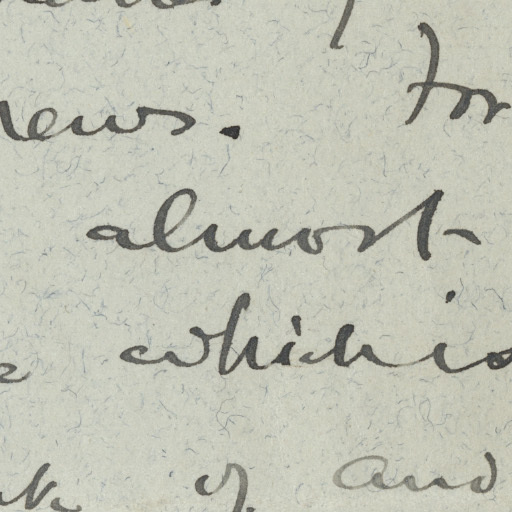 news. For
almost
which is
of and